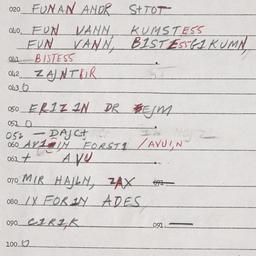 020 FUNAN ANDR S+TOT
040 FUN VANN, KUMSTESS
FUN VANN, BISTESSGIKUMN,
041 BISTESS
042 ZAJNTHIR
043 0
050 ERIZIN DR SEJM
052 0
056 — DAJCH
060 AVISIN FORSTI / AVUI,N
061 + AVU
070 MIR HAJLN, ZAX 073
080 IX FORIN ADES
090 CIRIK 091 —
100 0